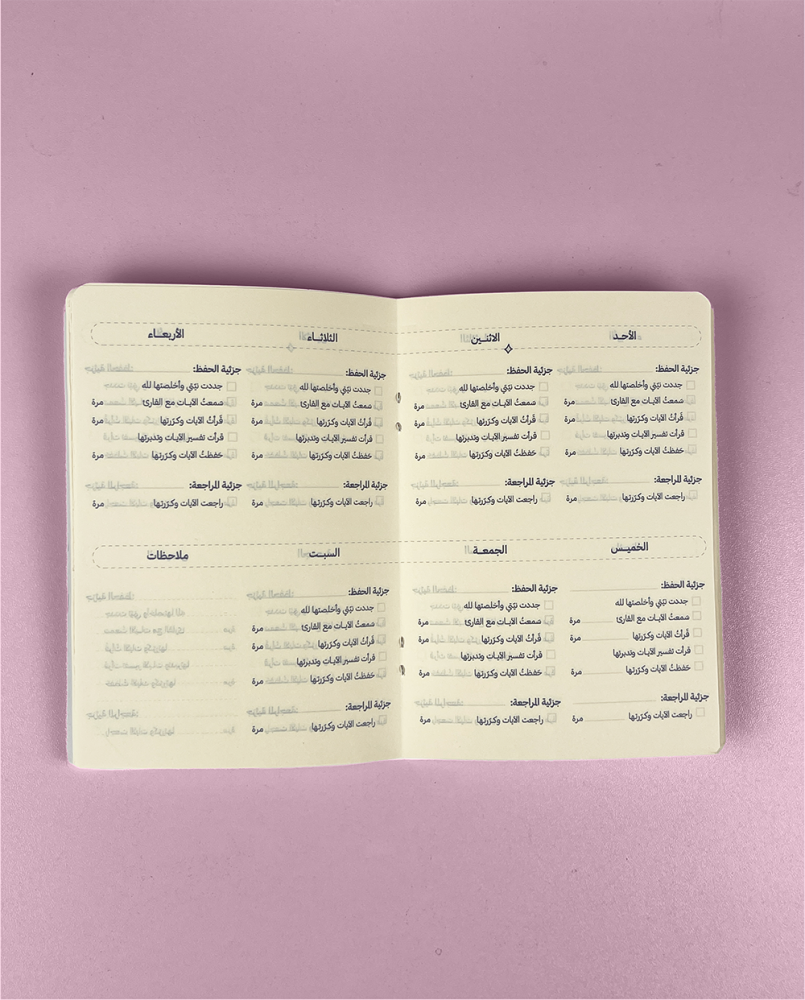 الأحـد
جزئية الحفظ:
جددت نيّتي وأخلصتها لله
سمعتُ الآيـات مع القارئ مرة
قُرأتُ الآيات وكـرّرتها مرة
قرأت تفسير الآيـات وتدبرتها
حفظتُ الآيات وكـرّرتها مرة
جزئية المراجعة:
راجعت الآيات وكـرّرتـها مرة
الاثنـين
جزئية الحفظ:
جددت نيّتي وأخلصتها لله
سمعتُ الآيـات مع القارئ مرة
قُرأتُ الآيات وكـرّرتها مرة
قرأت تفسير الآيـات وتدبرتها
حفظتُ الآيات وكـرّرتها مرة
جزئية المراجعة:
راجعت الآيات وكـرّرتـها مرة
الثلاثـاء
جزئية الحفظ:
جددت نيّتي وأخلصتها لله
سمعتُ الآيـات مع القارئ مرة
قُرأتُ الآيات وكـرّرتها مرة
قرأت تفسير الآيـات وتدبرتها
حفظتُ الآيات وكـرّرتها مرة
جزئية المراجعة:
راجعت الآيات وكـرّرتـها مرة
الأربعـاء
جزئية الحفظ:
جددت نيّتي وأخلصتها لله
سمعتُ الآيـات مع القارئ مرة
قُرأتُ الآيات وكـرّرتها مرة
قرأت تفسير الآيـات وتدبرتها
حفظتُ الآيات وكـرّرتها مرة
جزئية المراجعة:
راجعت الآيات وكـرّرتـها مرة
الخميـس
جزئية الحفظ:
جددت نيّتي وأخلصتها لله
سمعتُ الآيـات مع القارئ مرة
قُرأتُ الآيات وكـرّرتها مرة
قرأت تفسير الآيـات وتدبرتها
حفظتُ الآيات وكـرّرتها مرة
جزئية المراجعة:
راجعت الآيات وكـرّرتـها مرة
الجمعـة
جزئية الحفظ:
جددت نيّتي وأخلصتها لله
سمعتُ الآيـات مع القارئ مرة
قُرأتُ الآيات وكـرّرتها مرة
قرأت تفسير الآيـات وتدبرتها
حفظتُ الآيات وكـرّرتها مرة
جزئية المراجعة:
راجعت الآيات وكـرّرتـها مرة
السبـت
جزئية الحفظ:
جددت نيّتي وأخلصتها لله
سمعتُ الآيـات مع القارئ مرة
قُرأتُ الآيات وكـرّرتها مرة
قرأت تفسير الآيـات وتدبرتها
حفظتُ الآيات وكـرّرتها مرة
جزئية المراجعة:
راجعت الآيات وكـرّرتـها مرة
ملاحظات